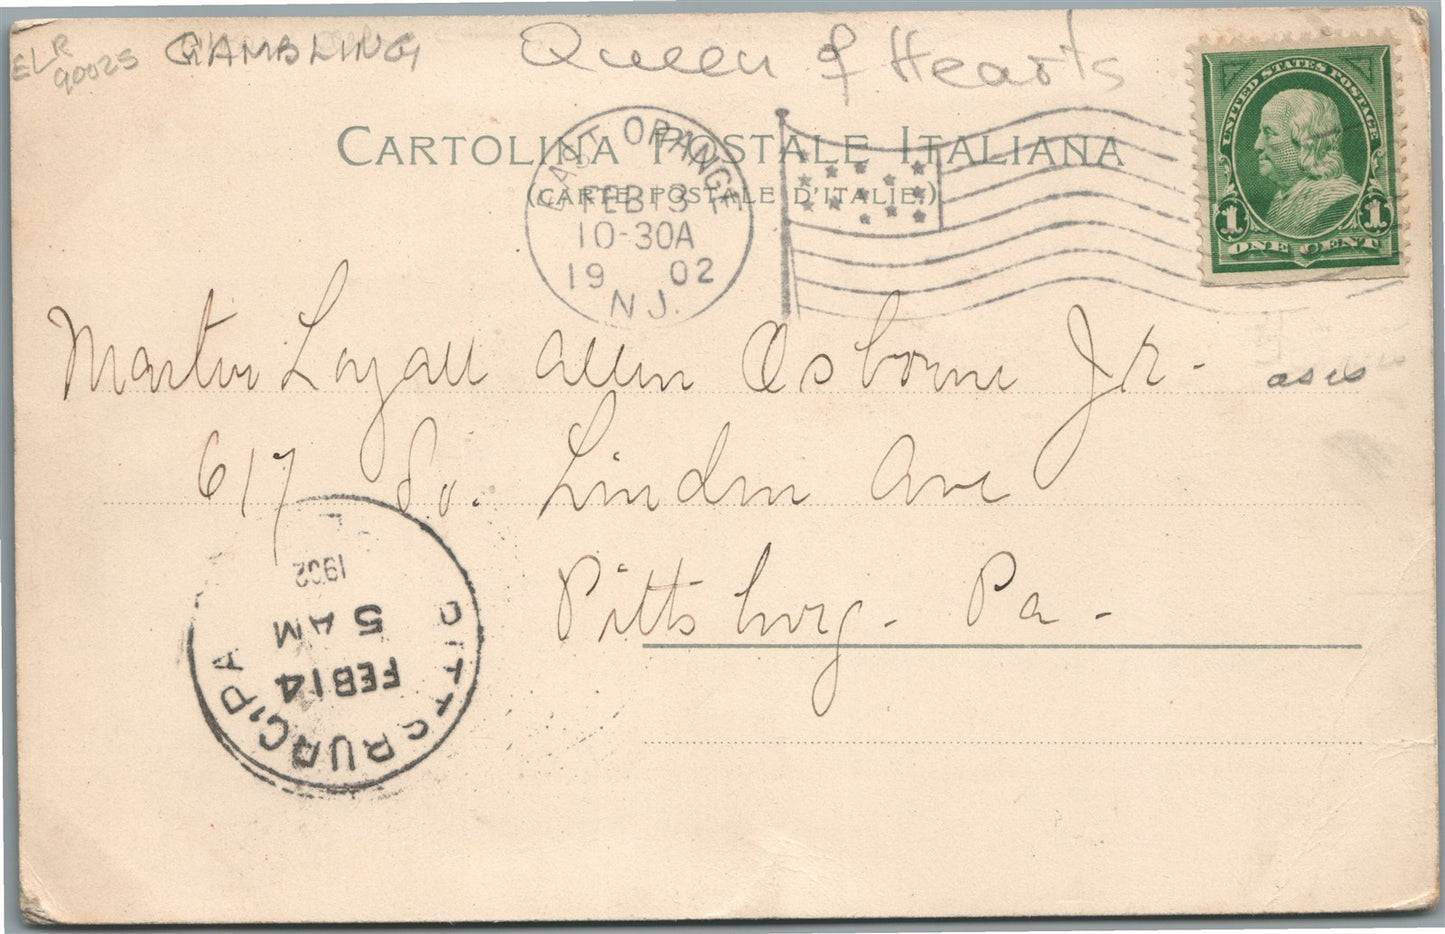 ELR
90025
GAMBLING
Queen of Hearts
UNITED STATES POSTAGE
1 1
ONE CENT
CARTOLINA POSTALE ITALIANA
(CARTE POSTALE D'ITALIE.)
EAST ORANGE
FEB 13
10-30A
19 02
N.J.
Martin Loyall Allen Osborne Jr-
as is
617 So. Linden Ave
Pittsburg. Pa-
PITTSBURG, PA
FEB 14
5 AM
1902